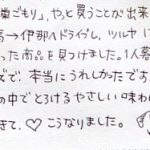 巣ごもり」、やっと買うことが出来
高→伊那へドライブし、ツルヤ に
った商品を見つけました。1人暮
ズで、本当にうれしかったです
の中でとろけるやさしい味わ
きて、♡ こうなりました。